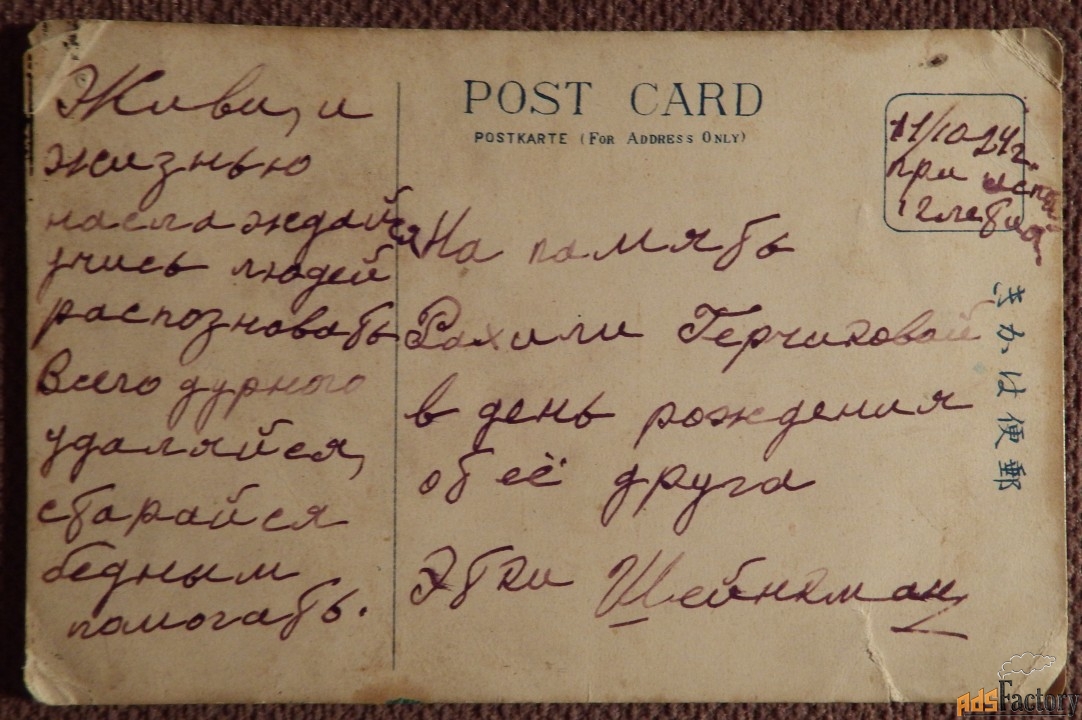 Живи, и
жизнью
наслаждайся
учись людей
распозновать
Всего дурного
удаляйся,
старайся
бедным
помогать.
POST CARD
POSTKARTE (FOR ADDRESS ONLY)
11/10 24 г.
при
12 лет
На память
Рахили Герчиковой
в день рождения
от её друга
Этки Шейнкман
きかは便郵
AdsFactory